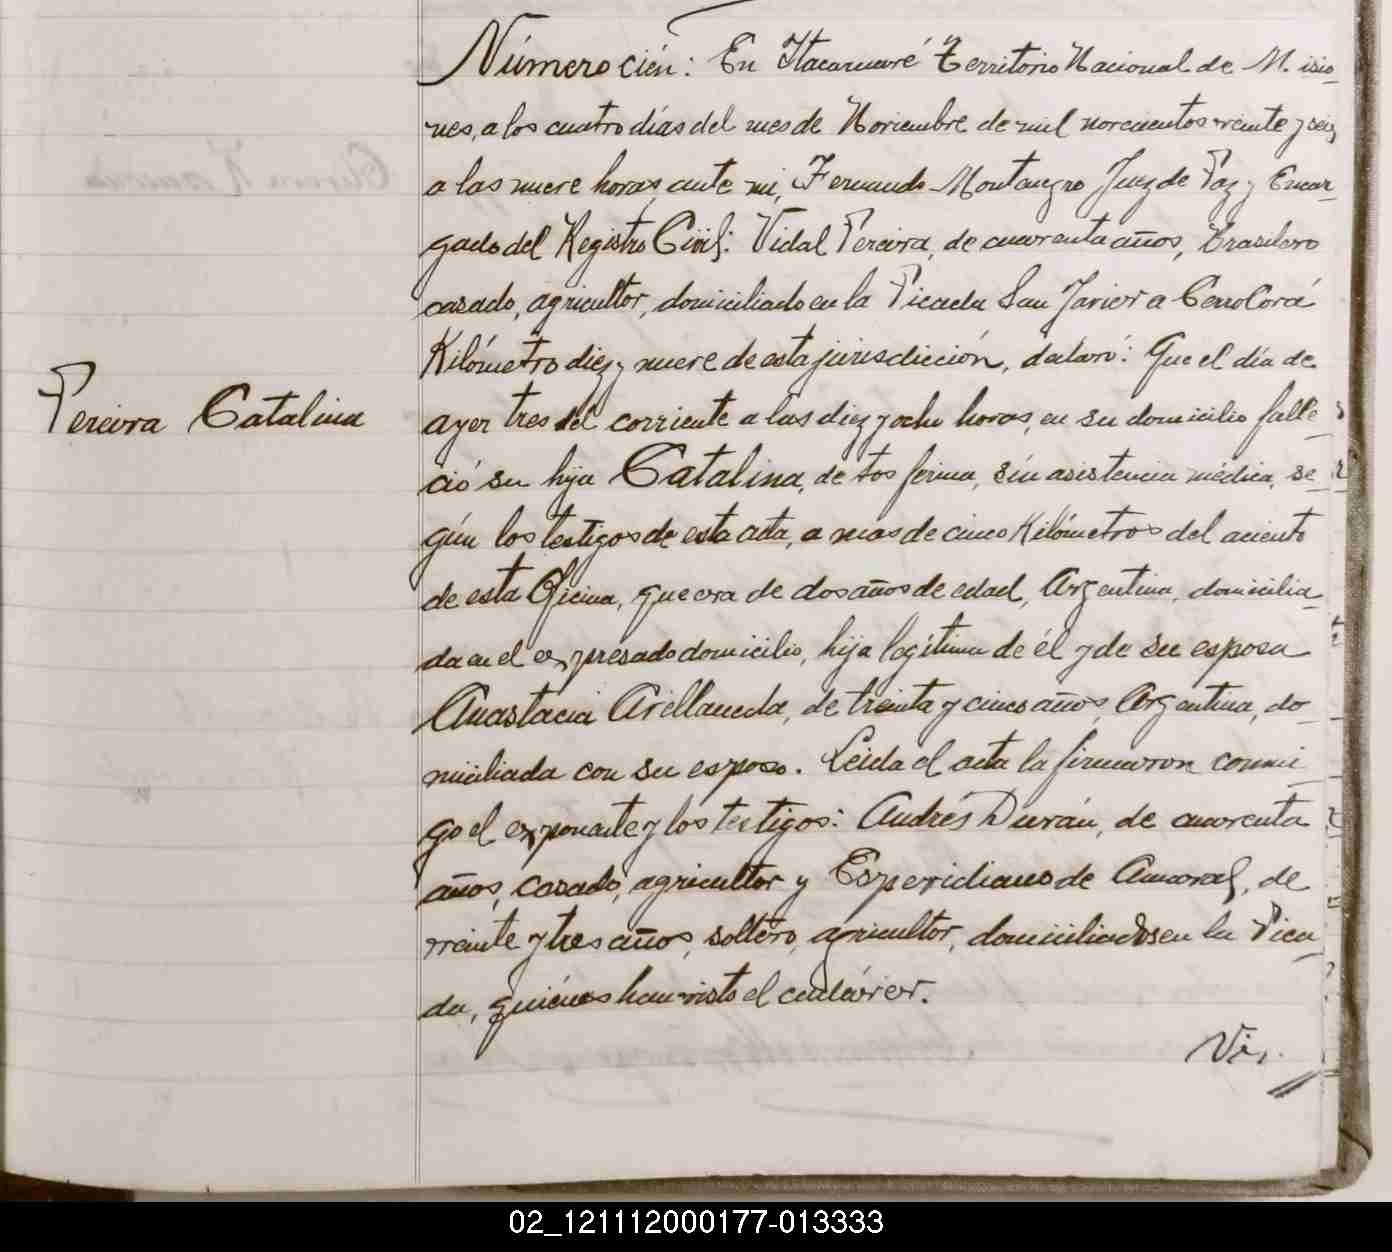 Número cién: En Itacaruaré Territorio Nacional de Misio-
nes, a los cuatro días del mes de Noviembre de mil novecuentos veinte y seis,
a las nueve horas, ante mi, Fernando Montenegro Juez de Paz y Encar-
gado del Registro Civil: Vidal Pereira, de cuarenta años, Brasilero
casado, agricultor, domiciliado en la Picada San Javier a Cerro Corá
Kilómetro diez y nueve de esta jurisdicción, declaró: Que el día de
ayer tres del corriente a las diez y ocho horas, en su domicilio falle
Pereira Catalina
ció su hija Catalina, de tos ferina, sin asistencia médica, se-
gún los testigos de esta acta, a mas de cinco Kilómetros del aciento
de esta Oficina, que era de dos años de edad, Argentina, domicilia-
da en el expresado domicilio, hija legítima de él y de su esposa
Anastacia Arellaneda, de treinta y cinco años, Argentina, do-
miciliada con su esposo. Leida el acta la firmaron conmi
go el exponente y los testigos: Andrés Durán, de cuarenta
años, casado, agricultor y Esperidiano de Amaral, de
veinte y tres años, soltero, agricultor, domiciliados en la Pica
da, quiénes han visto el cadáver.
02_121112000177-013333